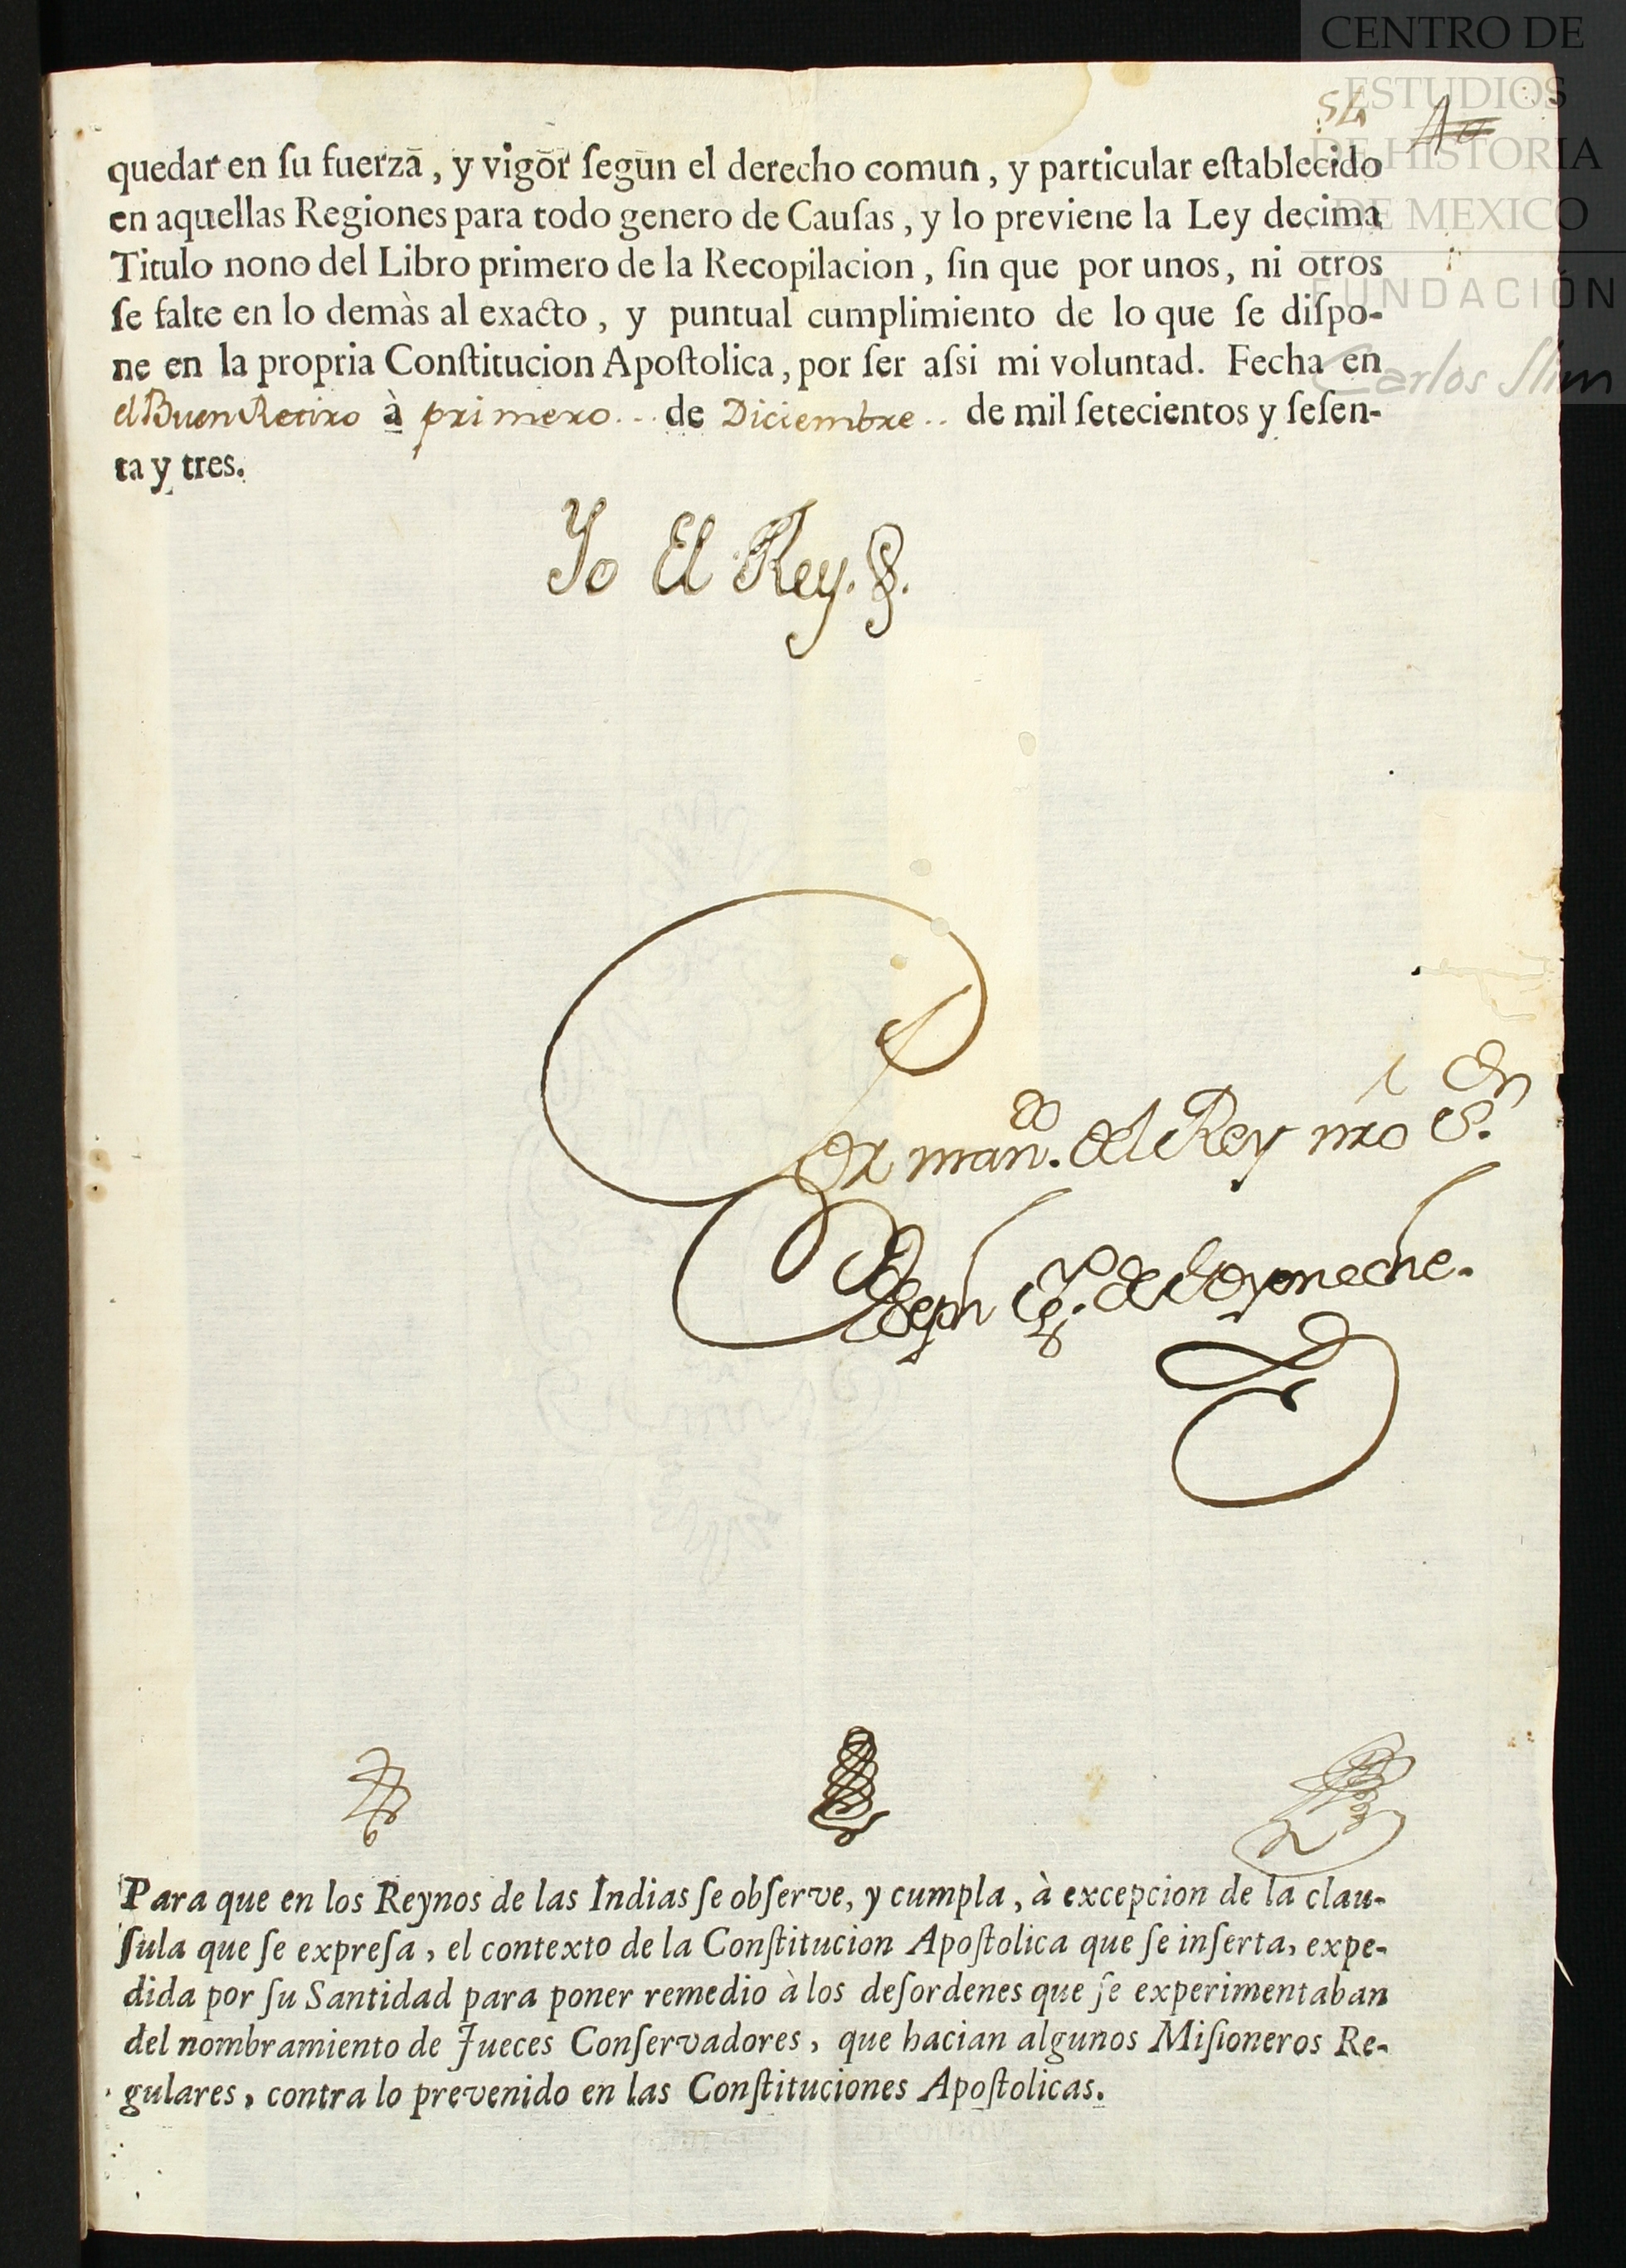 CENTRO DE
ESTUDIOS
DE HISTORIA
DE MEXICO
FUNDACIÓN
Carlos Slim
54
quedar en ſu fuerzā, y vigōr ſegūn el derecho comun, y particular eſtablecido
en aquellas Regiones para todo genero de Cauſas, y lo previene la Ley decima
Titulo nono del Libro primero de la Recopilacion, ſin que por unos, ni otros
ſe falte en lo demàs al exacto, y puntual cumplimiento de lo que ſe diſpo-
ne en la propria Conſtitucion Apoſtolica, por ſer aſsi mi voluntad. Fecha en
el Buen Retiro à primero... de Diciembre.. de mil ſetecientos y ſeſen-
ta y tres.
Yo El Rey.
Por man.do del Rey nro S.or
Joseph Ig.o de Goyeneche.
Para que en los Reynos de las Indias ſe obſerve, y cumpla, à excepcion de la clau-
ſula que ſe expreſa, el contexto de la Conſtitucion Apoſtolica que ſe inſerta, expe-
dida por ſu Santidad para poner remedio à los deſordenes que ſe experimentaban
del nombramiento de Jueces Conſervadores, que hacian algunos Miſioneros Re-
gulares, contra lo prevenido en las Conſtituciones Apoſtolicas.